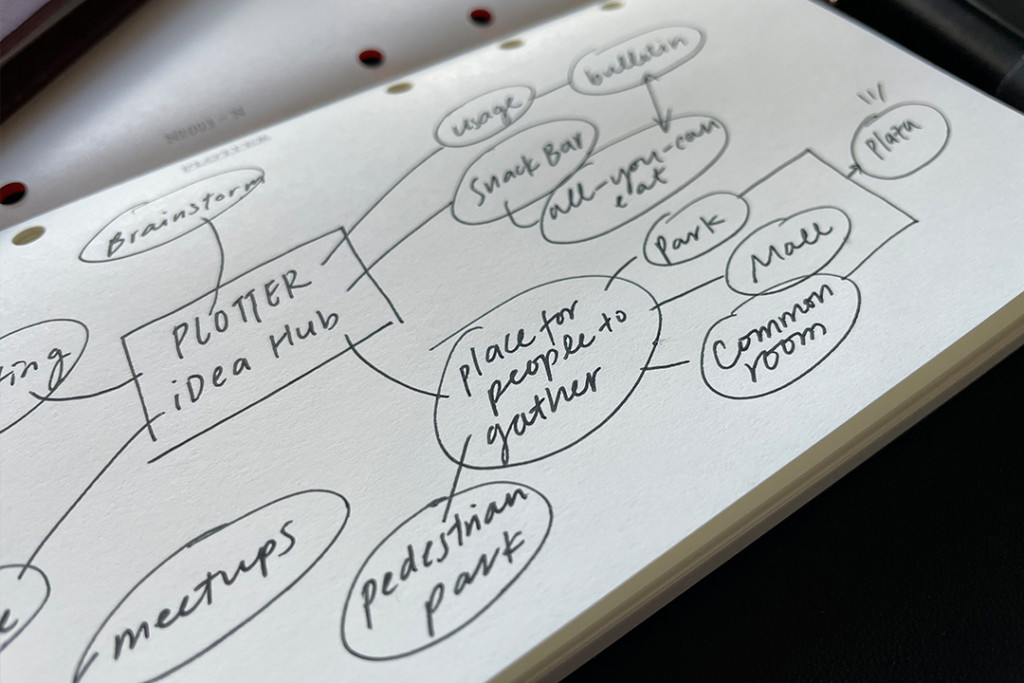 usage
bulletin
Snack Bar
all-you-can
eat
Plaza
Brainstorm
Park
Mall
Common
room
PLOTTER
iDea Hub
place for
people to
gather
pedestrian
park
meetups
PLOTTER